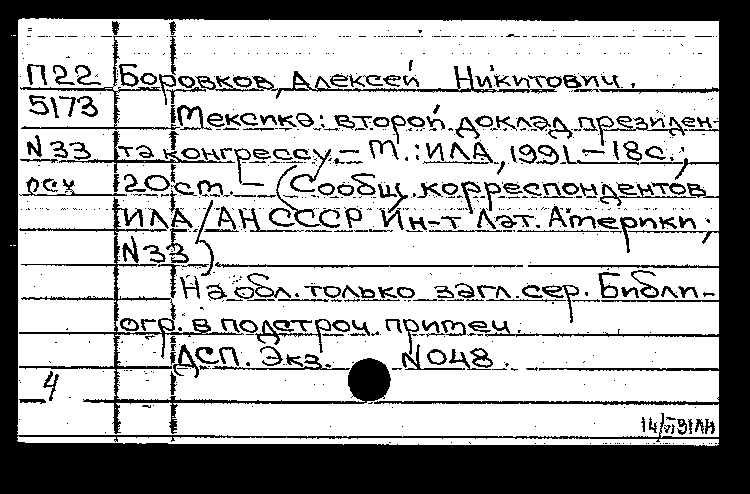 П22 Боровков, Алексей Никитович.
5173 Мексика: второй доклад президен-
N33 та конгрессу. – М.: ИЛА, 1991. – 18с.;
осх 20 см. – (Сообщ. корреспондентов
ИЛА / АН СССР Ин-т Лат. Америки;
N33)
На обл. только загл. сер. Библи-
огр. в подстроч. примеч.
ДСП. Экз. N048.
4
14/VI 91